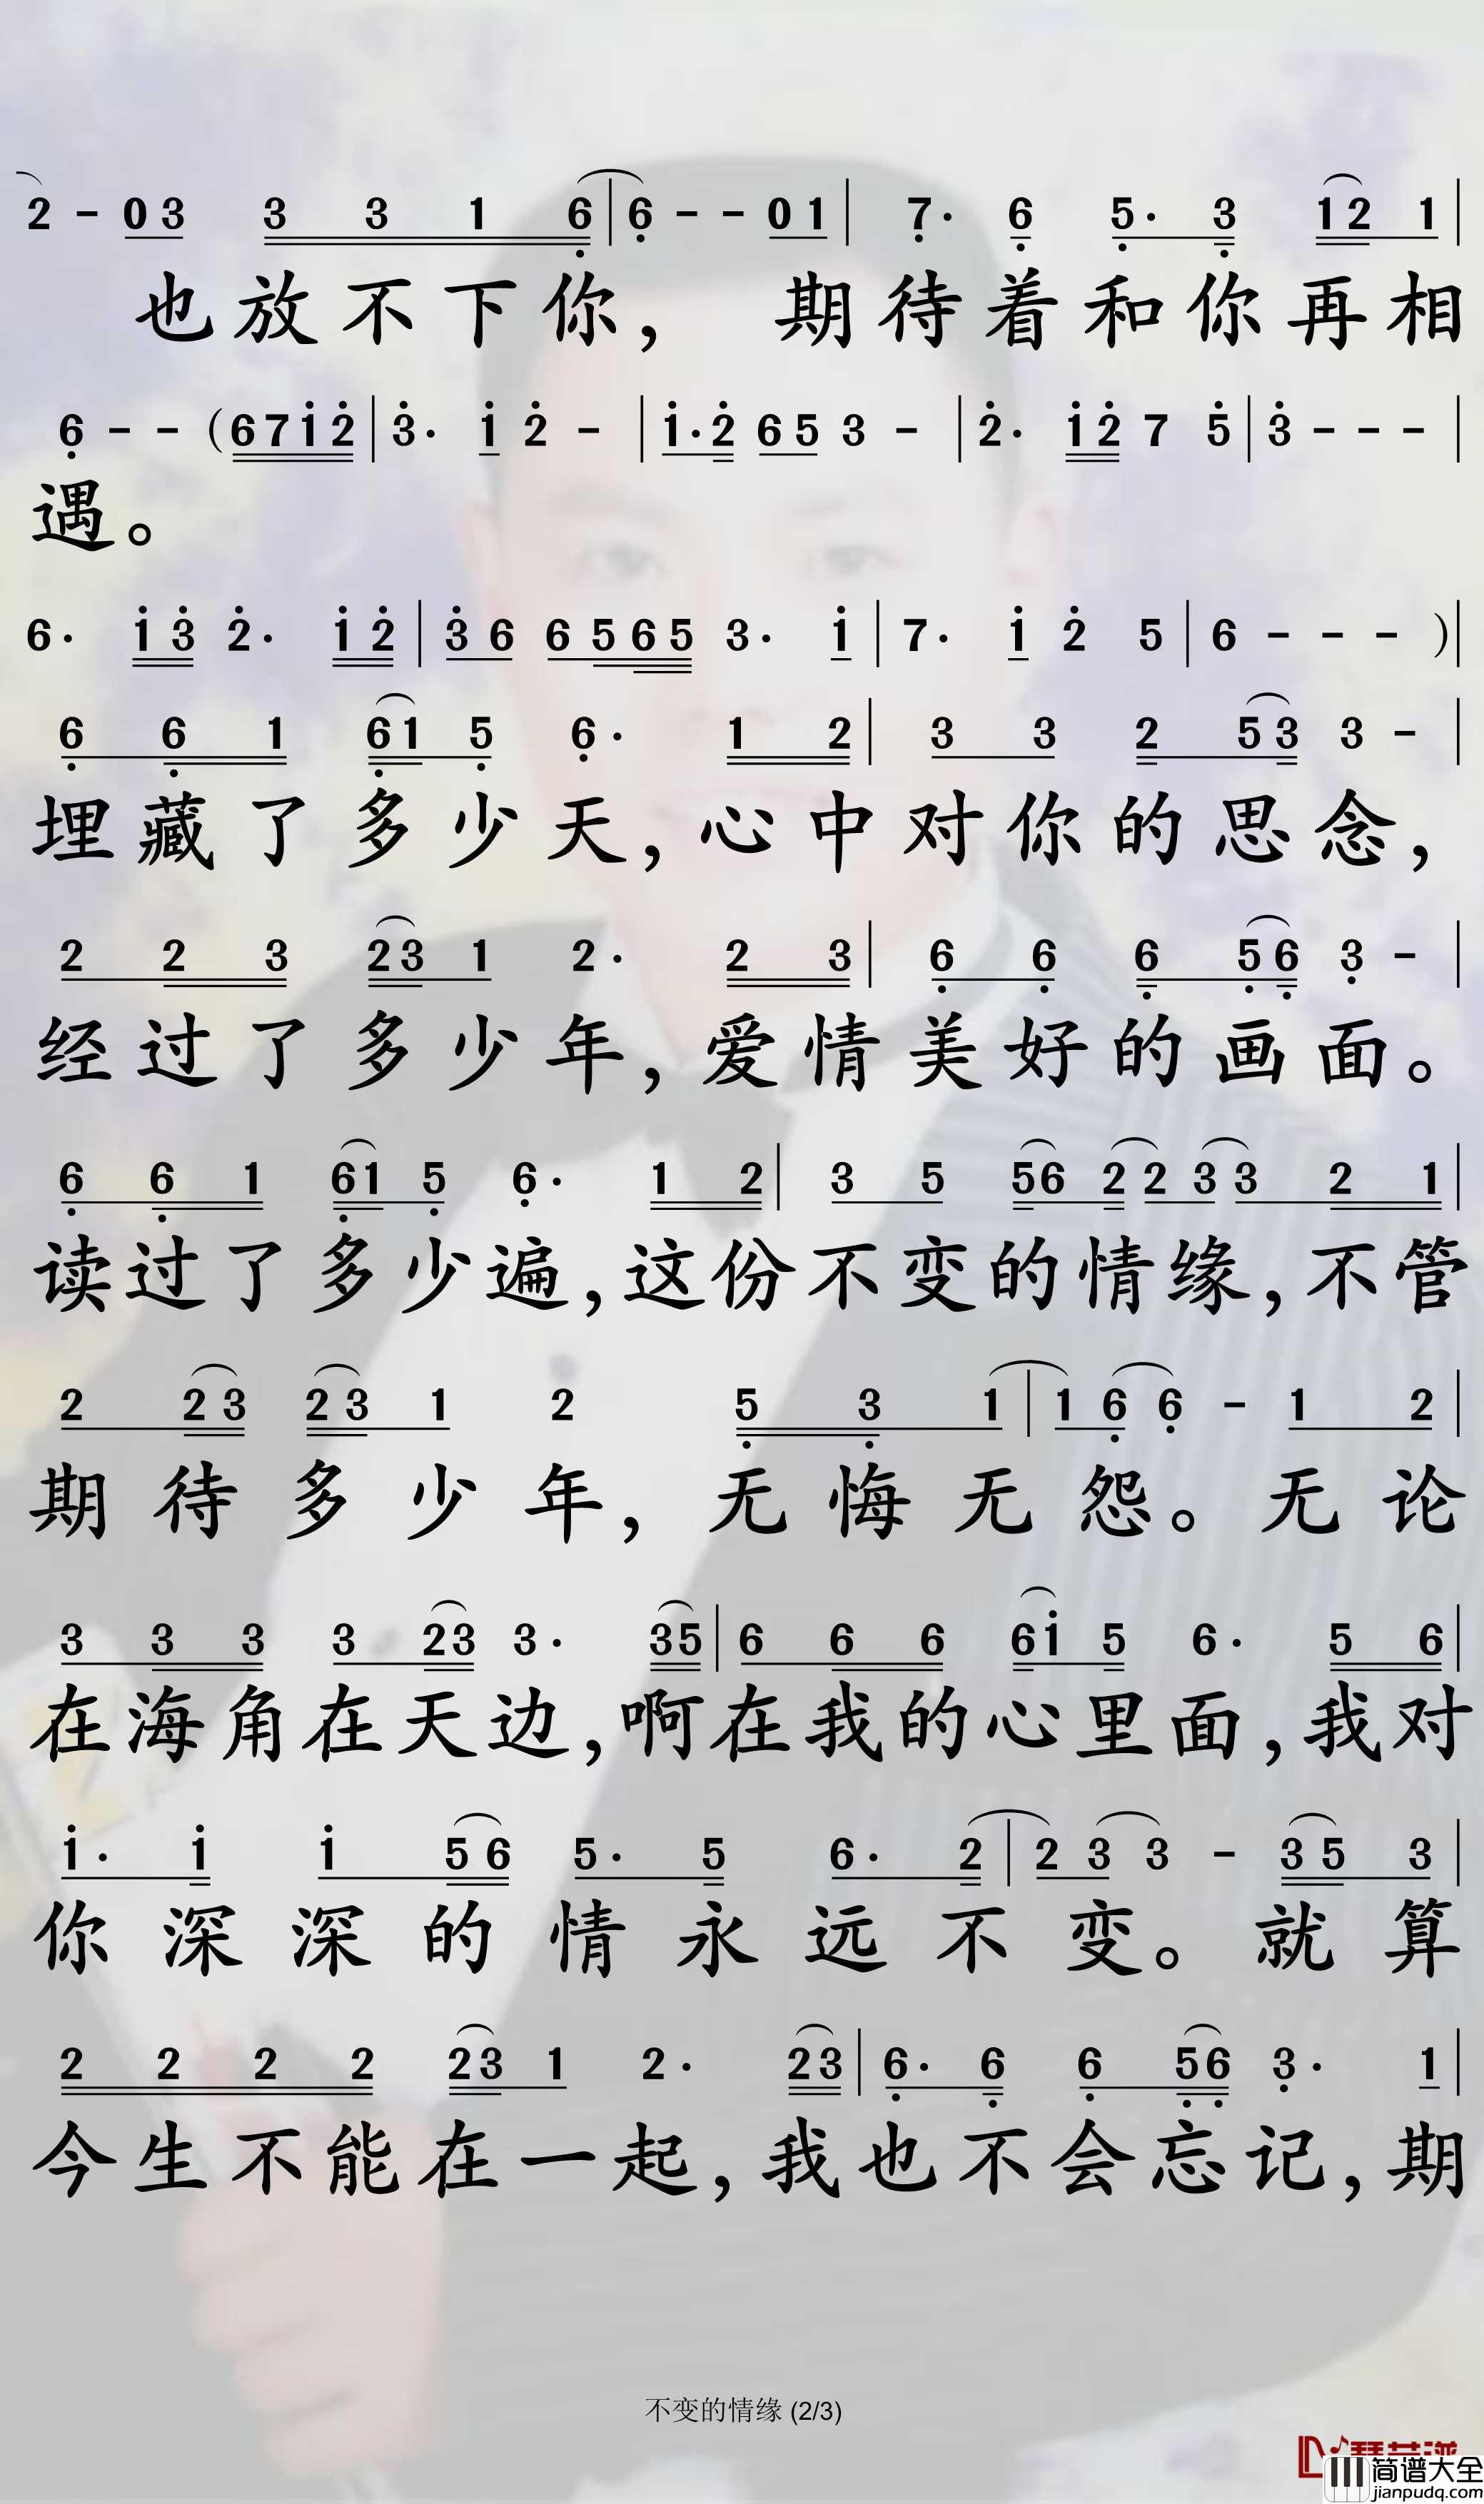 2 - 0 3 3 3 1 6 | 6 - - 0 1 | 7· 6 5· 3 1 2 1 |
也放不下你，期待着和你再相
6 - - (6 7 1 2 | 3· 1 2 - | 1· 2 6 5 3 - | 2· 1 2 7 5 | 3 - - - |
遇。
6· 1 3 2· 1 2 | 3 6 6 5 6 5 3· 1 | 7· 1 2 5 | 6 - - - ) |
6 6 1 6 1 5 6· 1 2 | 3 3 2 5 3 3 - |
埋藏了多少天，心中对你的思念，
2 2 3 2 3 1 2· 2 3 | 6 6 6 5 6 3 - |
经过了多少年，爱情美好的画面。
6 6 1 6 1 5 6· 1 2 | 3 5 5 6 2 2 3 3 2 1 |
读过了多少遍，这份不变的情缘，不管
2 2 3 2 3 1 2 5 3 1 | 1 6 6 - 1 2 |
期待多少年，无悔无怨。无论
3 3 3 3 2 3 3· 3 5 | 6 6 6 6 1 5 6· 5 6 |
在海角在天边，啊在我的心里面，我对
1· 1 1 5 6 5· 5 6· 2 | 2 3 3 - 3 5 3 |
你深深的情永远不变。就算
2 2 2 2 2 3 1 2· 2 3 | 6· 6 6 5 6 3· 1 |
今生不能在一起，我也不会忘记，期
不变的情缘 (2/3)
简谱大全
jianpudq.com